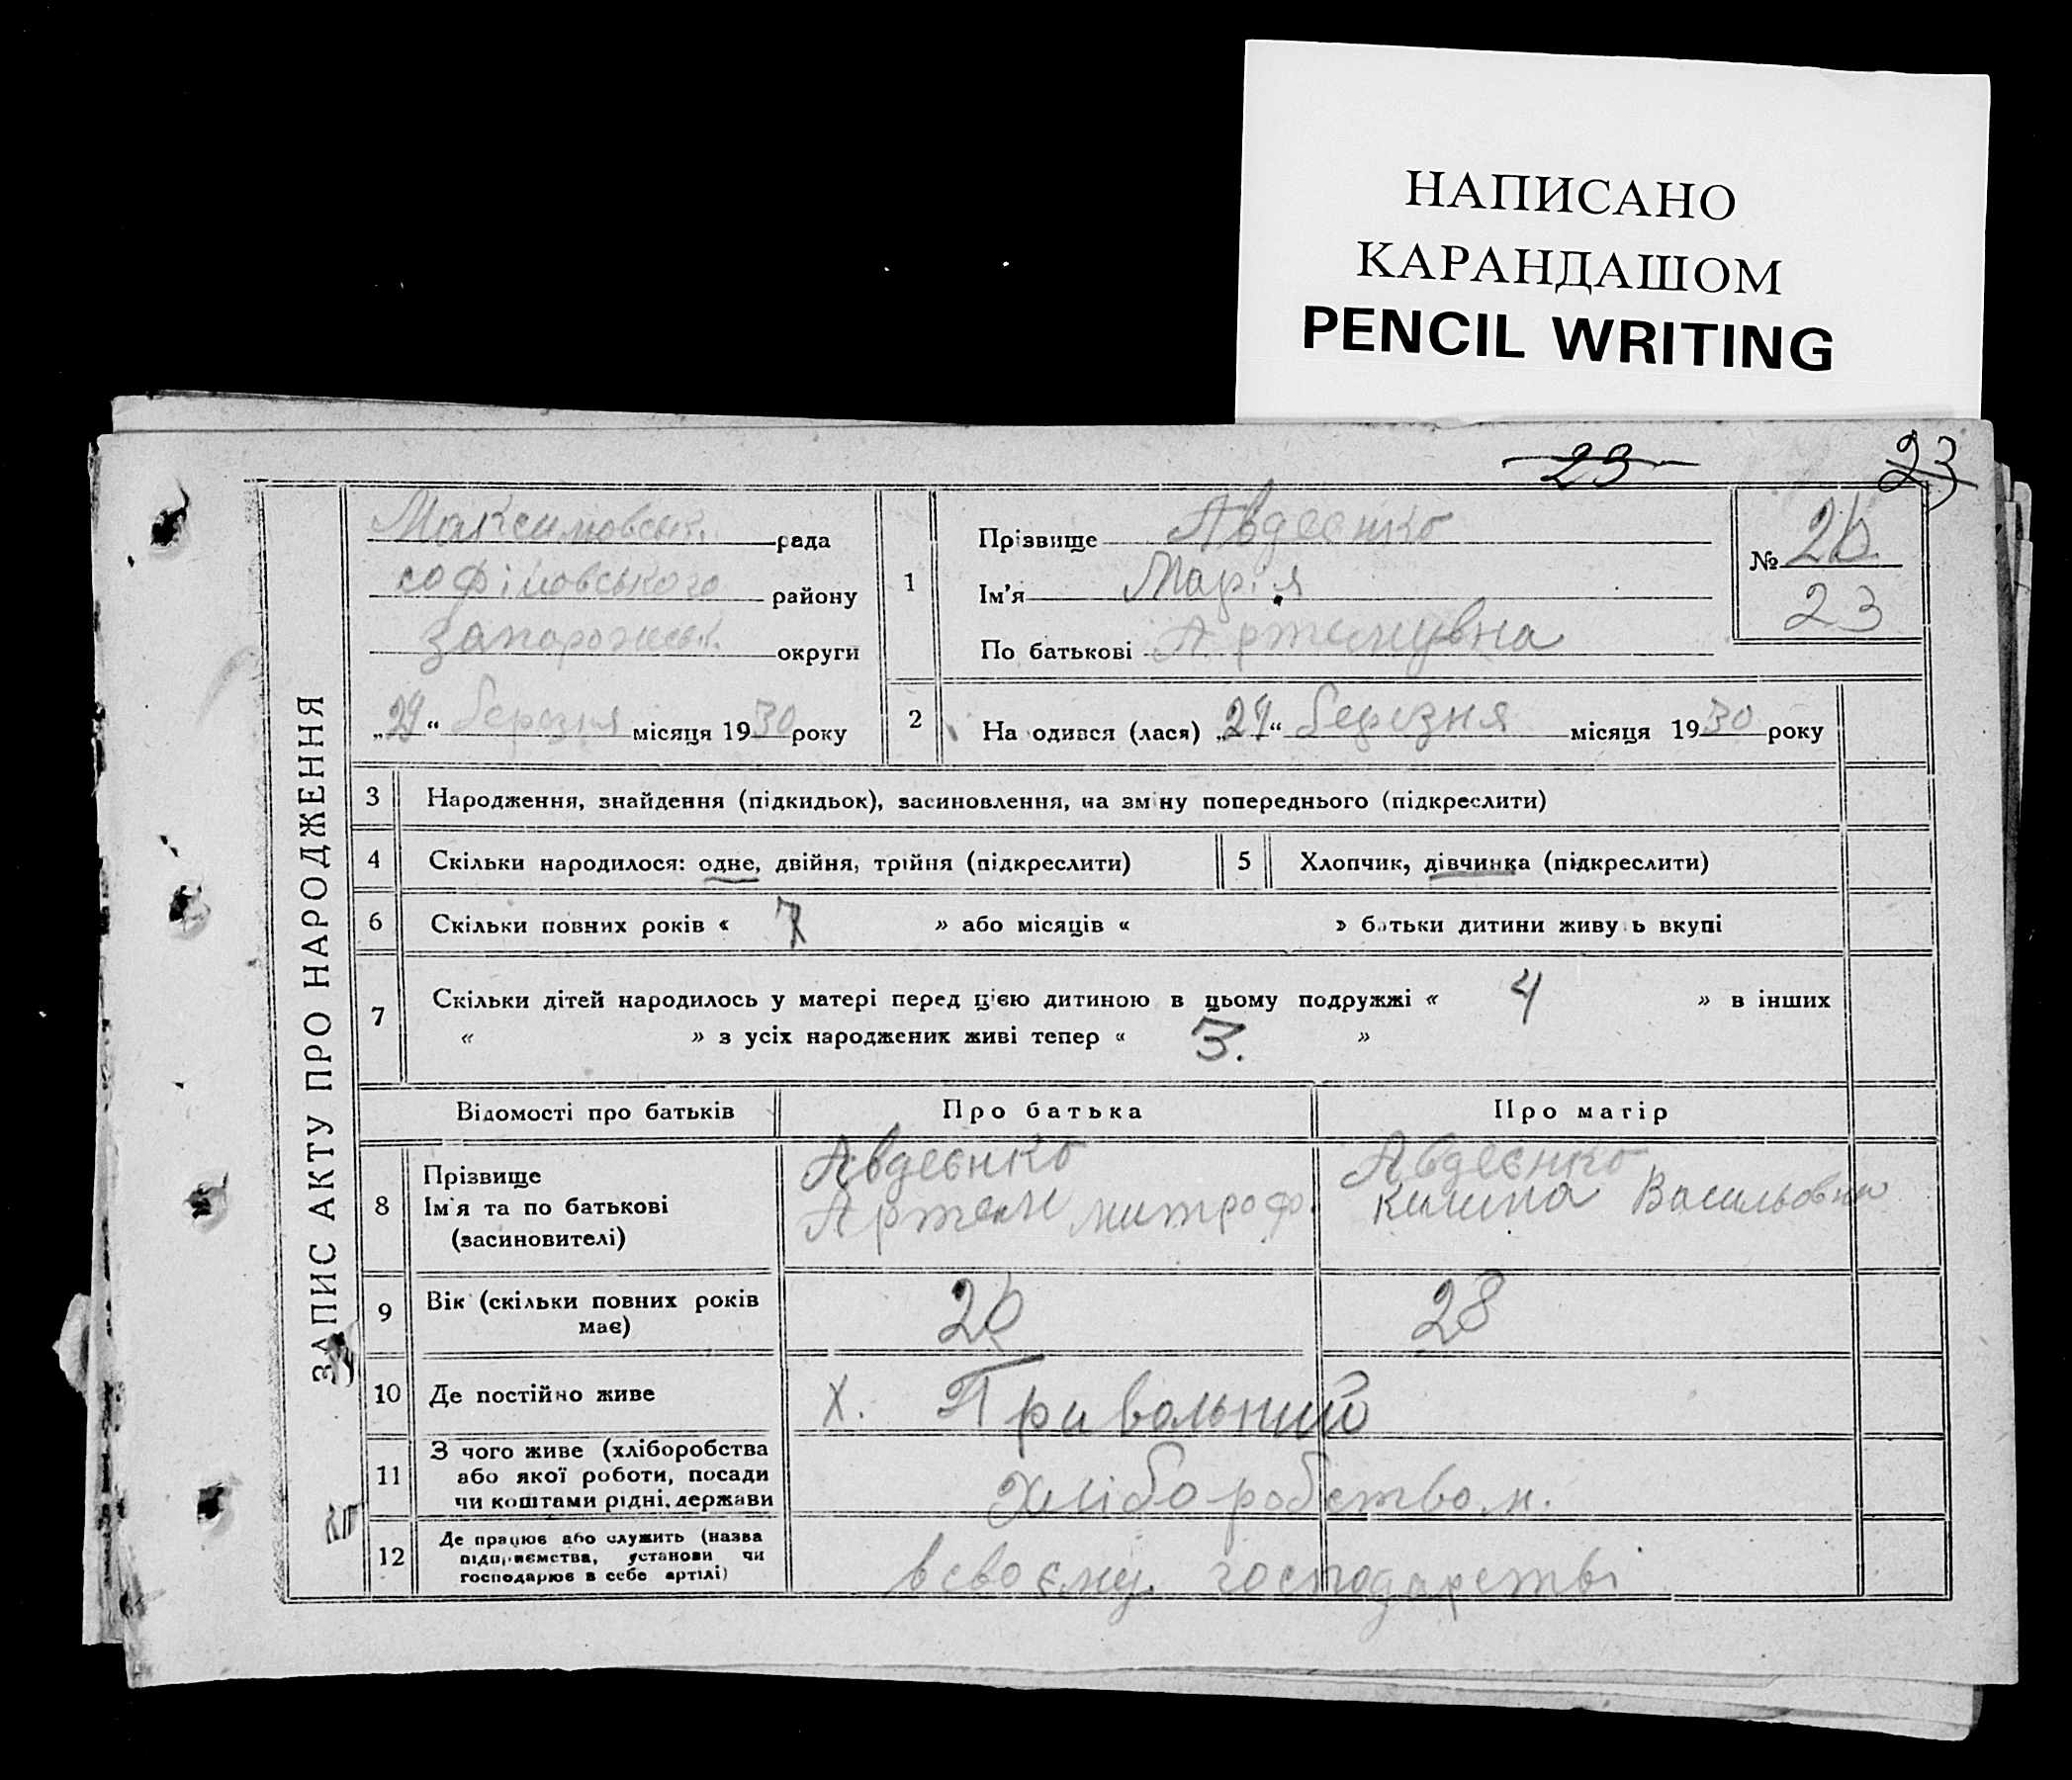 НАПИСАНО
КАРАНДАШОМ
PENCIL WRITING
23 23
ЗАПИС АКТУ ПРО НАРОДЖЕННЯ
Максимовськ. рада
софіївського району
Запорожськ. округи
„29“ березня місяця 1930 року
1 Прізвище Авдеєнко
Ім'я Марія
По батькові Артемувна
№ 26
23
2 На одився (лася) „24“ березня місяця 1930 року
3 Народження, знайдення (підкидьок), засиновлення, на зміну попереднього (підкреслити)
4 Скільки народилося: одне, двійня, трійня (підкреслити) 5 Хлопчик, дівчинка (підкреслити)
6 Скільки повних років « 7 » або місяців « » батьки дитини живу ь вкупі
7 Скільки дітей народилось у матері перед цією дитиною в цьому подружжі « 4 » в інших
« » з усіх народжених живі тепер « 3. »
Відомості про батьків Про батька Про матір
8 Прізвище
Ім'я та по батькові
(засиновителі)
Авдеєнко
Артем митроф.
Авдеєнко
Килина Васильовна
9 Вік (скільки повних років має) 26 28
10 Де постійно живе х. Привольний
11 З чого живе (хліборобства
або якої роботи, посади
чи коштами рідні, держави
Хліборобством.
12 Де працює або служить (назва
підприємства, установи чи
господарює в себе артілі)
в своєму господарстві